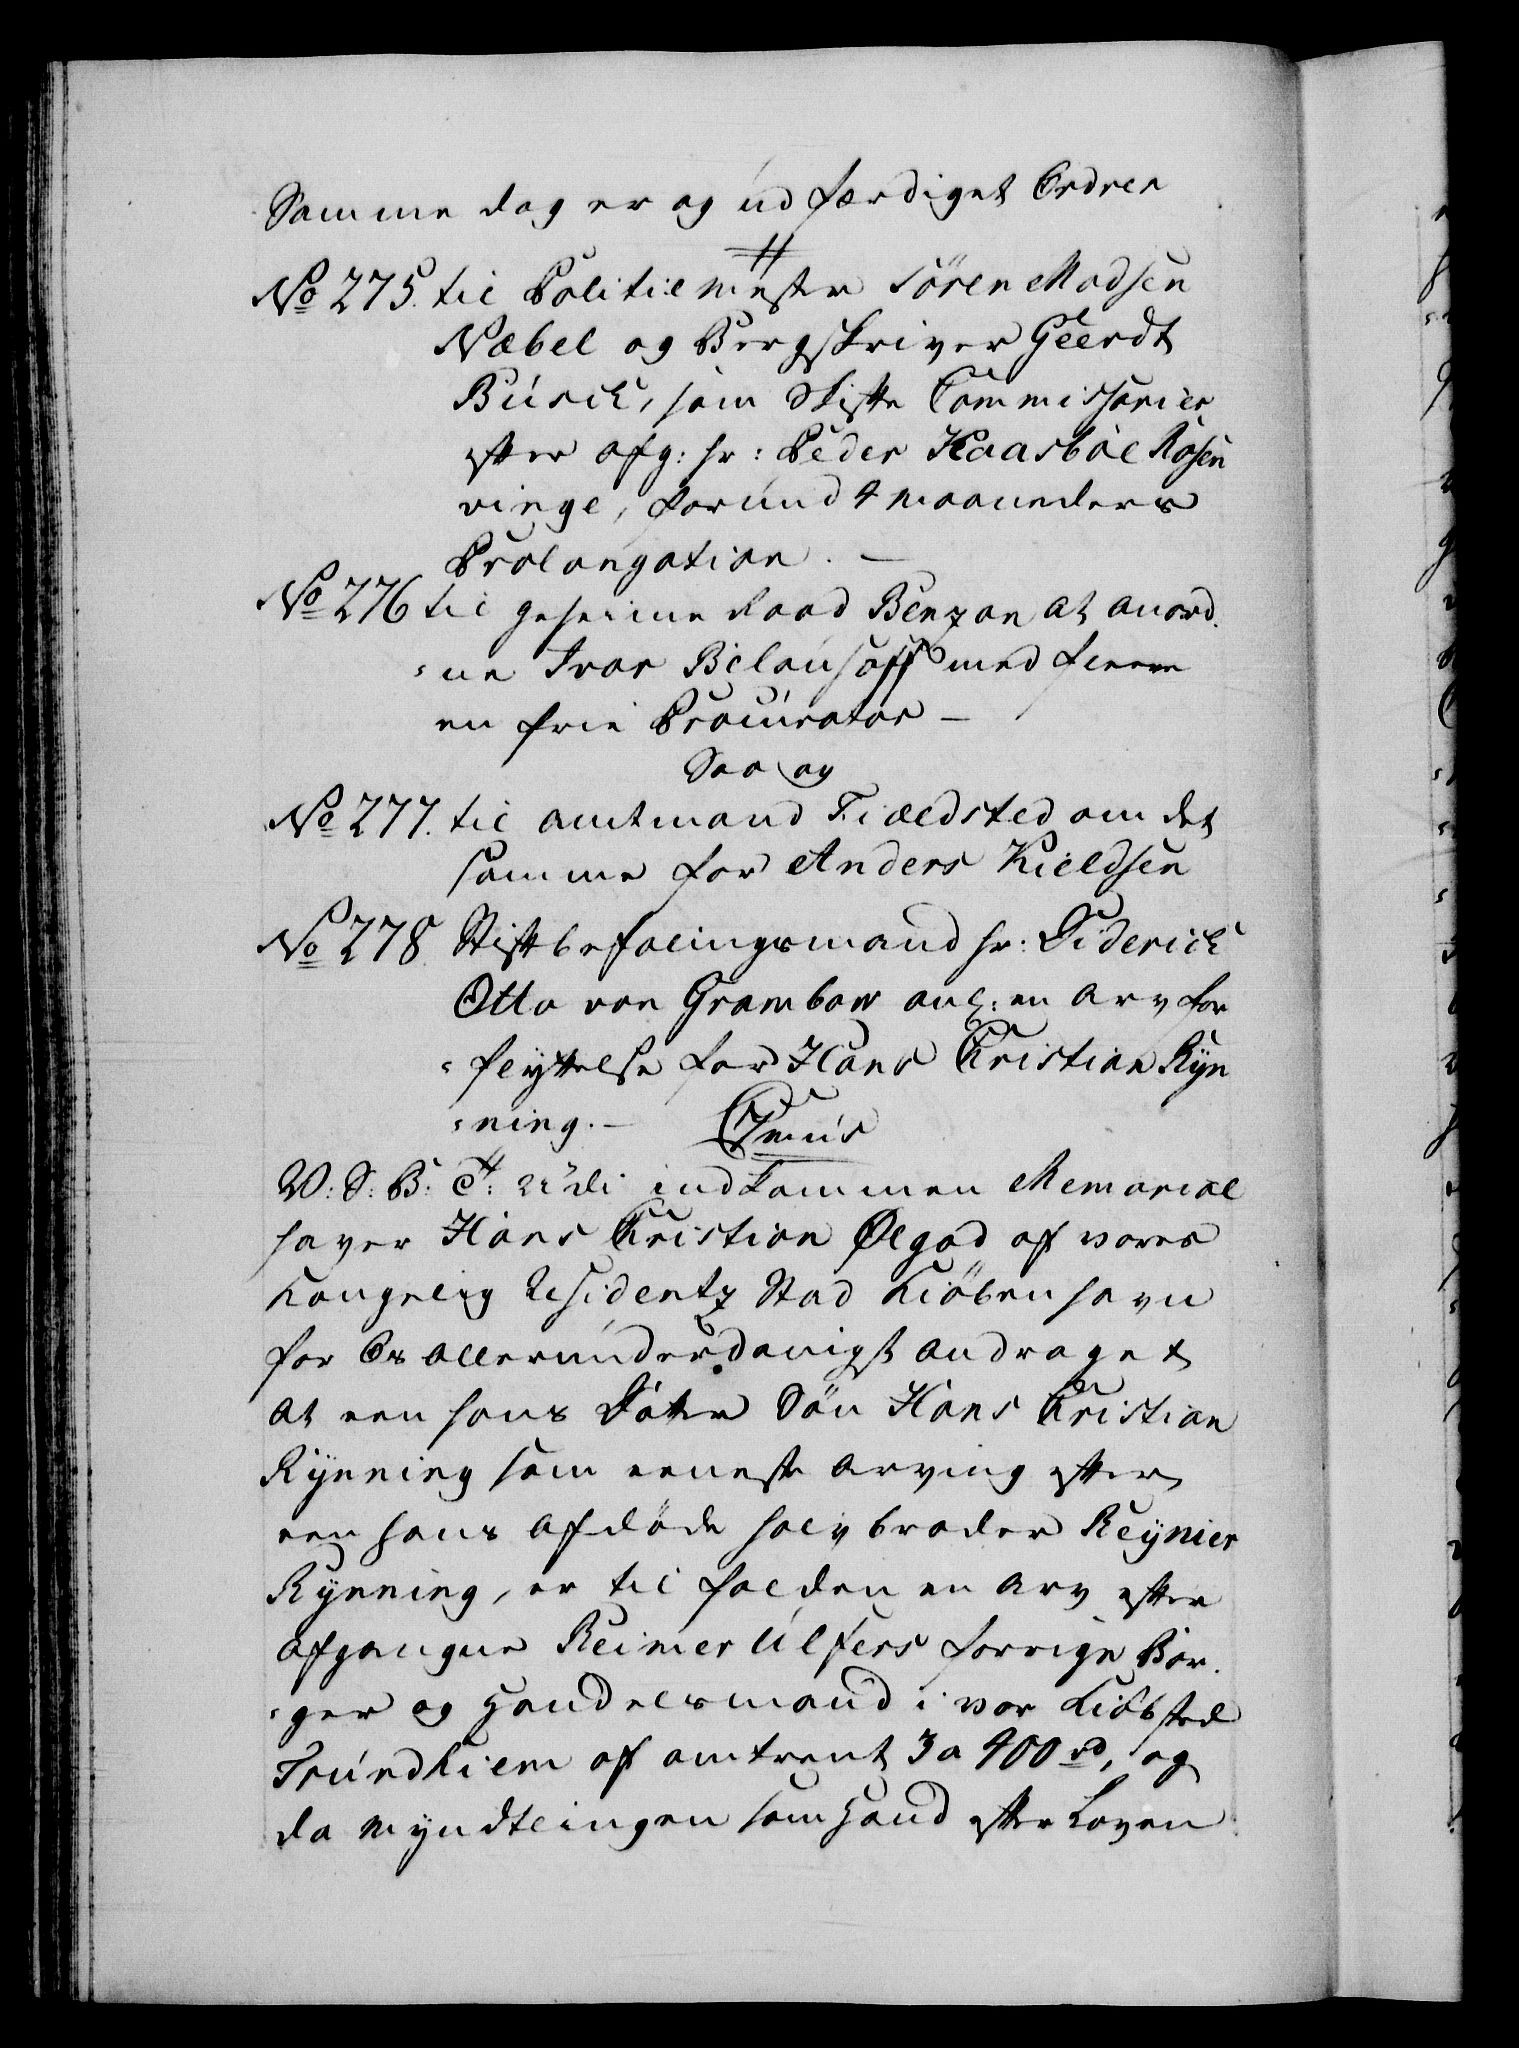 Samme dag er og udfærdiget Ordrer
No 275. til Politiemester Sören Madsen
Næbel og Bergskriver Geerdt
Búsch, som Skifte Commissarier
efter afg: hr: Peder Haasböe Rosen
vinge, forúnd 4 maaneders
Prolongation. —
No 276 til geheime Raad Benzon at anord.
=ne Ivar Bilau hoff med fleere
en frie Procúrator —
Saa og
No 277. til amtmand Fieldsted om det
samme for Anders Kieldsen
No 278. Stiftbefalingsmand hr: Diderich
Otto von Grambow anl: en Arv for
=flyttelse for Hans Christian Ryn
=ning. — Cujus
V: S: B: T: udi indkommen Memorial
haver Hans Christian Ølgod af vores
Kongelig Residentz Stad Kiöbenhavn
for Os allerúnderdanigst andraget
at een hans Dotter Sön Hans Christian
Rÿnning som eeneste Arving efter
een hans afdöde halvbroder Reÿnier
Rÿnning, er tilfalden en Arv efter
afgangne Reimer Úlfers forrige Bor.
=ger og Handelsmand i vor Kiöbsted
Trúndhiem af omtrent 3 a 400 rd, og
da Myndtlingen som Hand efter Loven